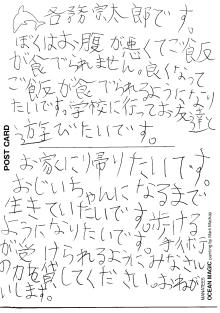 各務宗太郎です。
ぼくはお腹が悪くてご飯
が食べられません。良くなって
ご飯が食べられるようになり
たいです。学校に行ってお友達と
遊びたいです。
お家に帰りたいです。
おじいちゃんになるまで
生きていたいです。歩ける
ようになりたいです。手術
が受けられるようにみなさん
の力を貸してください。おねが
いします。
POST CARD
MANATEES
OCEAN MAGIC